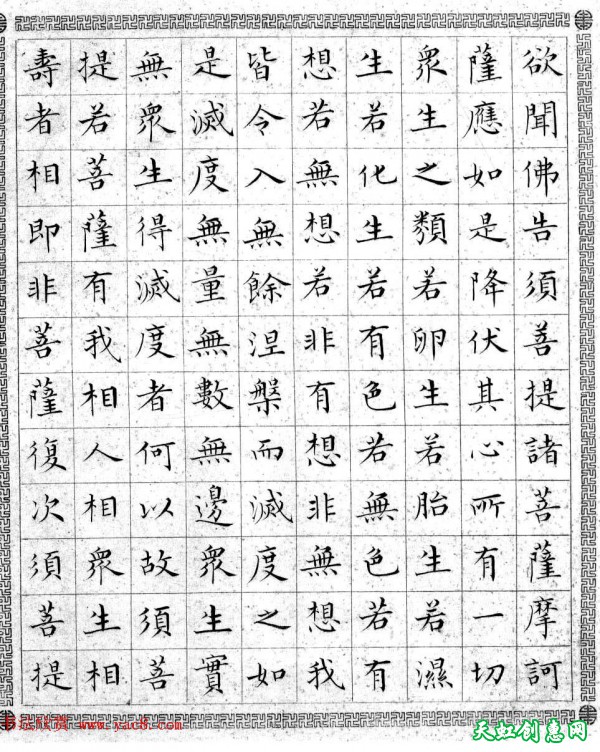 欲聞佛告須菩提諸菩薩摩訶
薩應如是降伏其心所有一切
衆生之類若卵生若胎生若濕
生若化生若有色若無色若有
想若無想若非有想非無想我
皆令入無餘涅槃而滅度之如
是滅度無量無數無邊衆生實
無衆生得滅度者何以故須菩
提若菩薩有我相人相衆生相
壽者相即非菩薩復次須菩提
www.yac8.com
天虹创意网